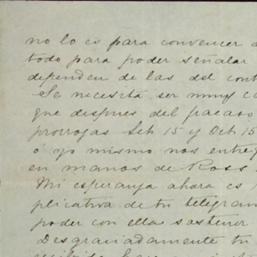 no lo es para convencer a
todo para poder señalar
dependen de las del cont
Se necesita ser muy c
que despues del fracaso
prorrogas Set 15 y Oct 15
ó yo mismo nos entreg
en manos de Ross
Mi esperanza ahora es
plicativa de tu telegram
poder con ella sostener
Desgraciadamente tu